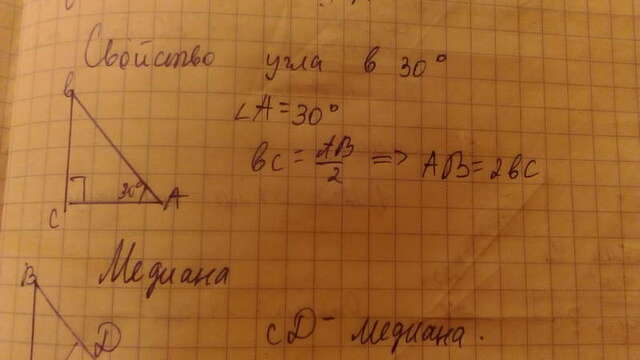 Свойство угла в 30°
B
∠A = 30°
BC = AB/2 => AB = 2BC
30°
C
A
Медиана
B
D
CD - медиана.